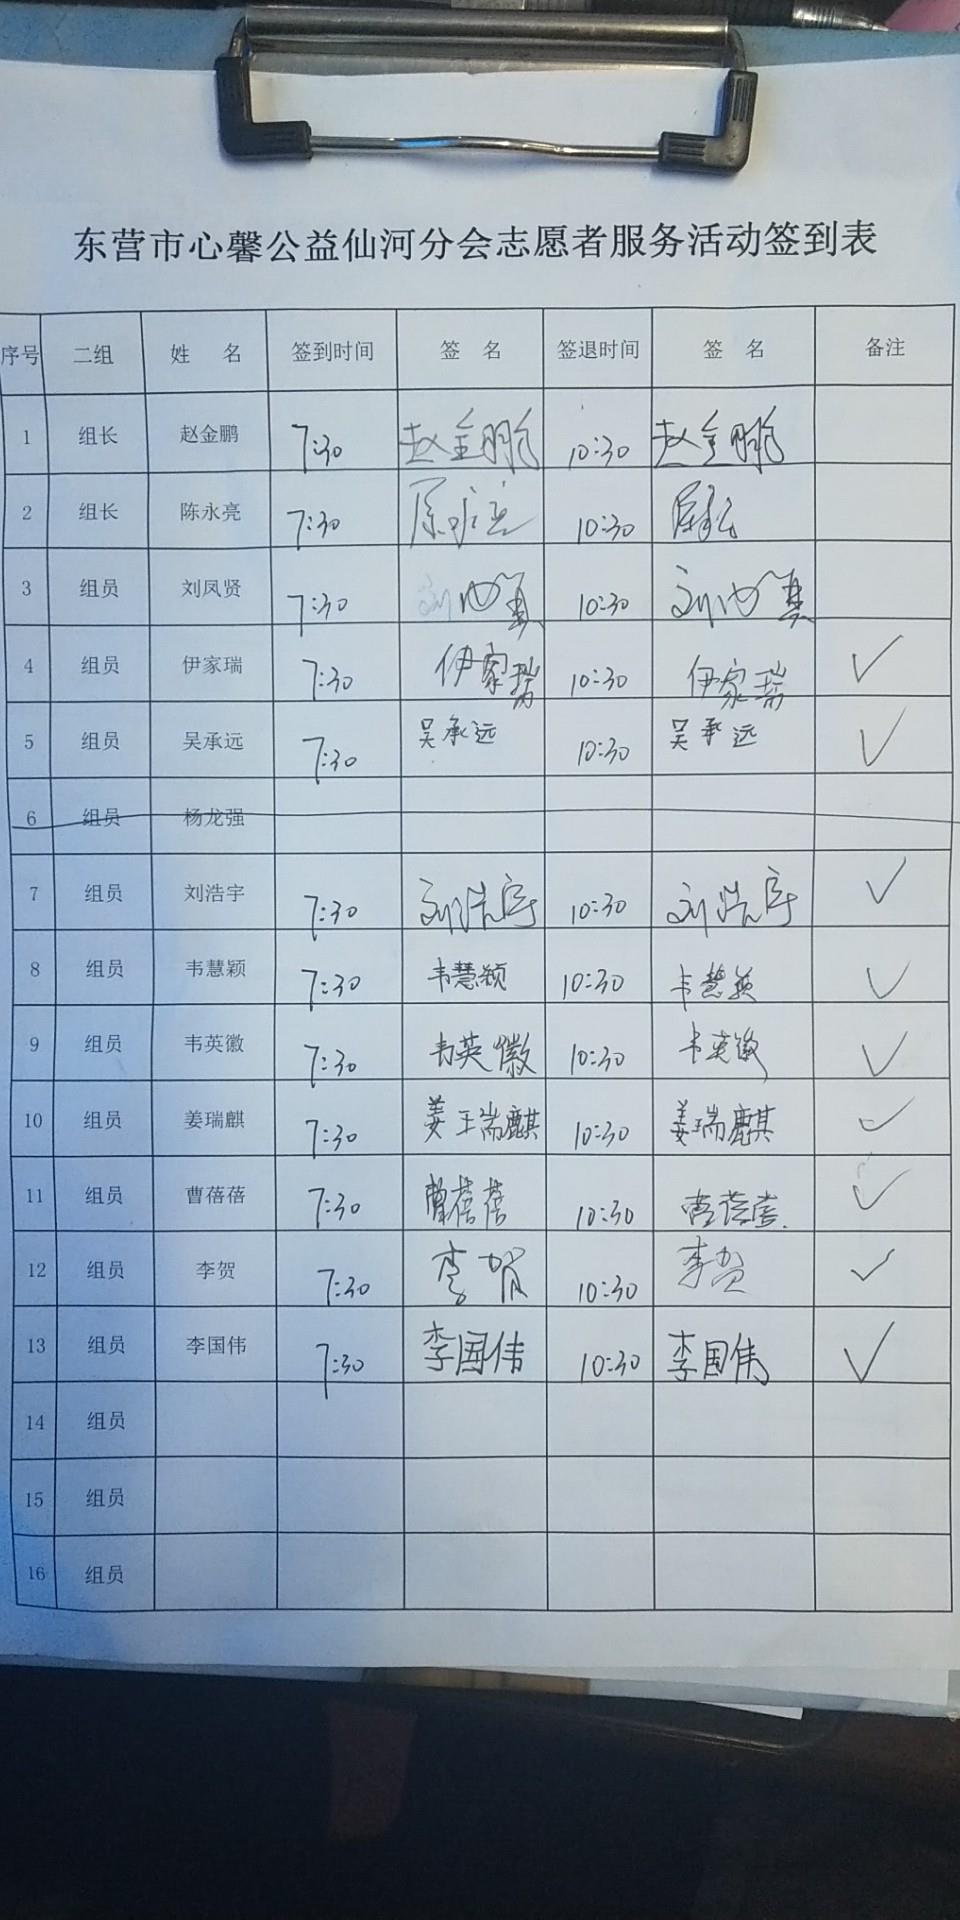 东营市心馨公益仙河分会志愿者服务活动签到表
序号 二组 姓 名 签到时间 签 名 签退时间 签 名 备注
1 组长 赵金鹏 7:30 赵金鹏 10:30 赵金鹏
2 组长 陈永亮 7:30 陈永亮 10:30
3 组员 刘凤贤 7:30 10:30
4 组员 伊家瑞 7:30 伊家瑞 10:30 伊家瑞 ✓
5 组员 吴承远 7:30 吴承远 10:30 吴承远 ✓
6 组员 杨龙强
7 组员 刘浩宇 7:30 刘浩宇 10:30 刘浩宇 ✓
8 组员 韦慧颖 7:30 韦慧颖 10:30 韦慧颖 ✓
9 组员 韦英徽 7:30 韦英徽 10:30 韦英徽 ✓
10 组员 姜瑞麒 7:30 姜瑞麒 10:30 姜瑞麒 ✓
11 组员 曹蓓蓓 7:30 曹蓓蓓 10:30 曹蓓蓓 ✓
12 组员 李贺 7:30 李贺 10:30 李贺 ✓
13 组员 李国伟 7:30 李国伟 10:30 李国伟 ✓
14 组员
15 组员
16 组员